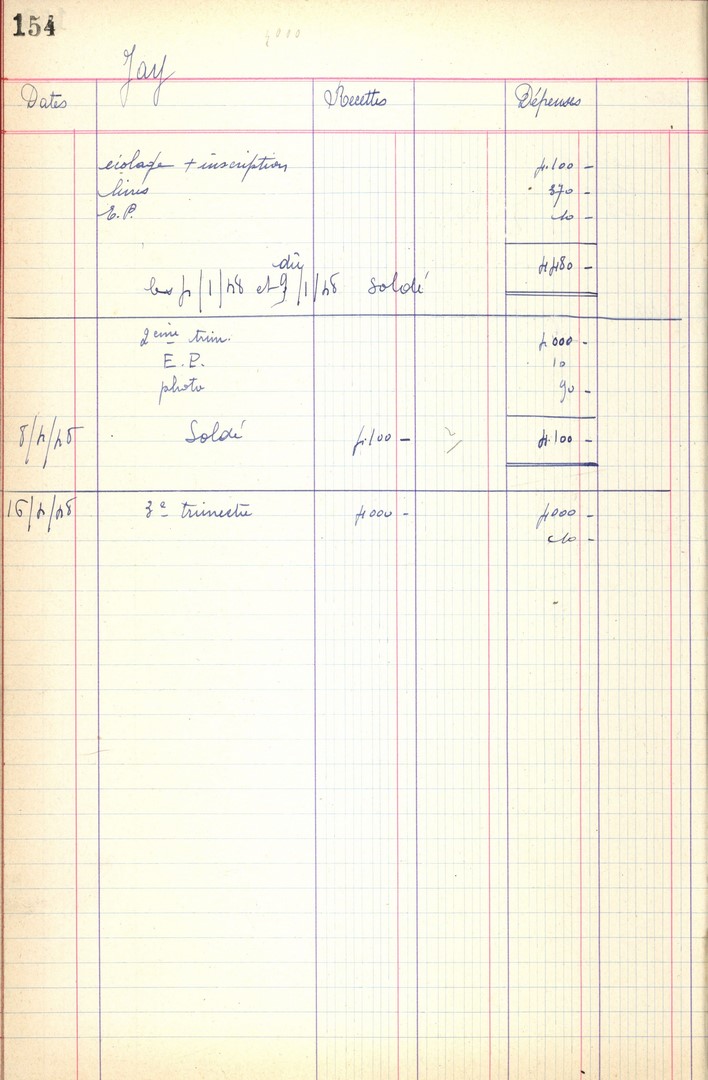 154
Jay
Dates Recettes Dépenses
écolage + inscription 4.100 -
livres 370 -
E.P. 10 -
4480 -
du
4/1/48 et 9/1/48 Soldé
2ème trim. 4000 -
E.P. 10
photo 90 -
8/4/48 Soldé 4.100 - 4.100 -
16/4/48 3e trimestre 4000 - 4000 -
10 -